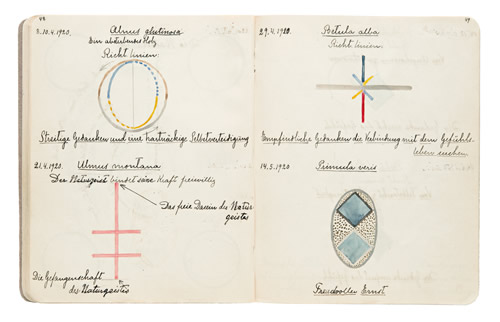 48
8.10.4.1920. Alnus glutinosa
Ein absterbendes Holz
Richtlinien:
Streitige Gedanken und eine hartnäckige Selbstverteidigung
21.4.1920. Ulmus montana
Der Naturgeist bindet seine Kraft freiwillig
Das freie Dasein des Natur
geistes
Die Gefangenschaft
des Naturgeistes
49
29.4.1920. Betula alba
Richtlinien:
Empfindliche Gedanken die Verbindung mit dem Gefühls-
leben suchen.
14.5.1920 Primula veris
Freudvoller Ernst.